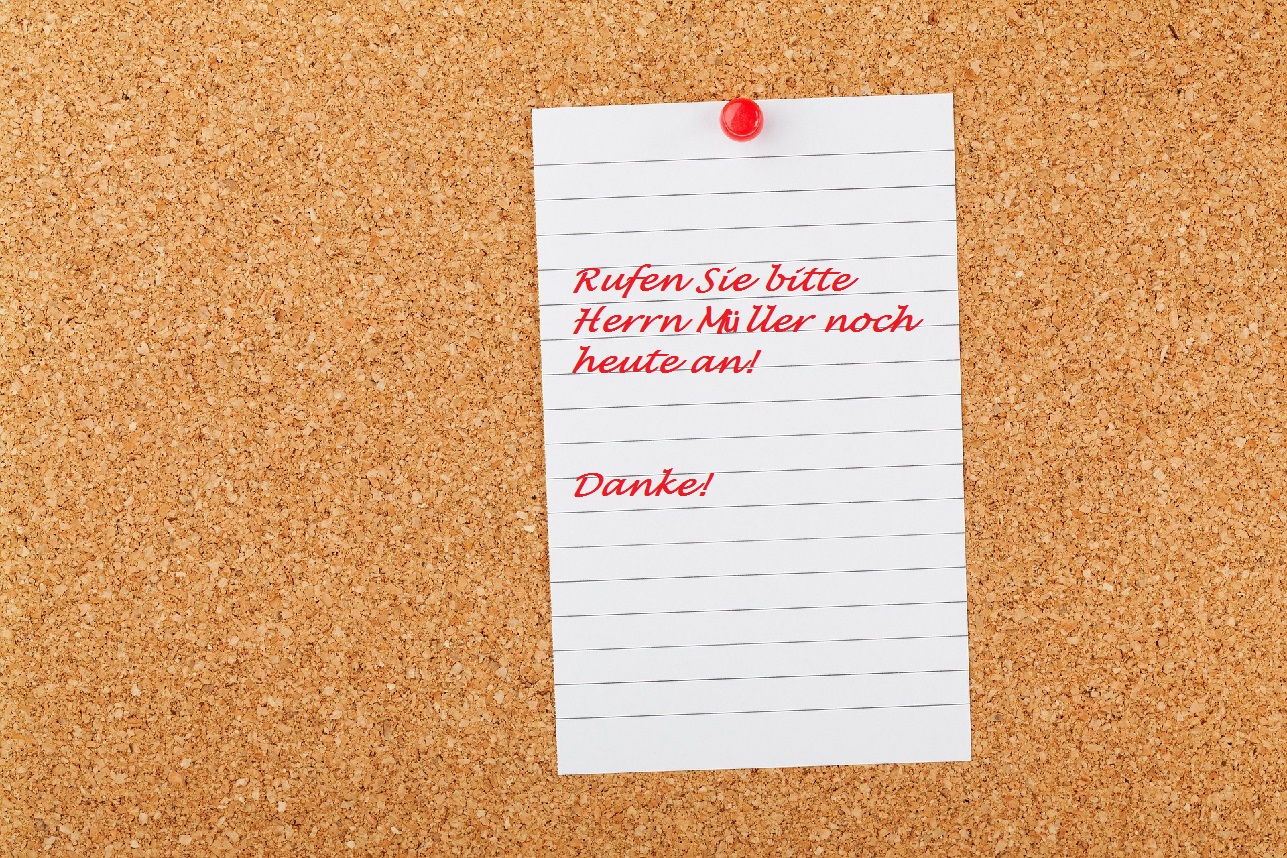 Rufen Sie bitte
Herrn Müller noch
heute an!
Danke!